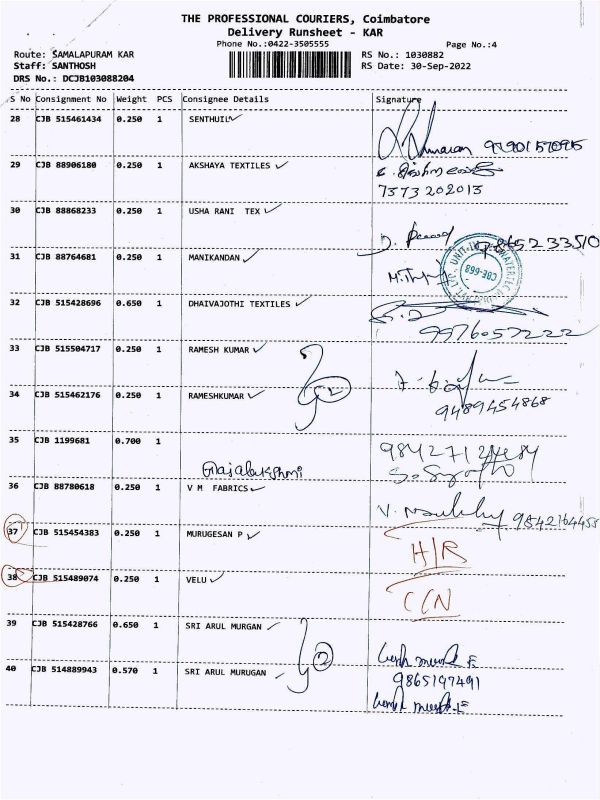 THE PROFESSIONAL COURIERS, Coimbatore
Delivery Runsheet - KAR
Phone No.:0422-3505555
Page No.:4
Route: SAMALAPURAM KAR
RS No.: 1030882
Staff: SANTHOSH
RS Date: 30-Sep-2022
DRS No.: DCJB103088204
S No Consignment No Weight PCS Consignee Details Signature
28 CJB 515461434 0.250 1 SENTHUIL
29 CJB 88906180 0.250 1 AKSHAYA TEXTILES
7373202013
30 CJB 88868233 0.250 1 USHA RANI TEX
31 CJB 88764681 0.250 1 MANIKANDAN
CBE-668
32 CJB 515428696 0.650 1 DHAIVAJOTHI TEXTILES
9976057222
33 CJB 515504717 0.250 1 RAMESH KUMAR
34 CJB 515462176 0.250 1 RAMESHKUMAR 2
9489454868
35 CJB 1199681 0.700 1
36 CJB 88780618 0.250 1 V M FABRICS
9842164453
37 CJB 515454383 0.250 1 MURUGESAN P
H/R
38 CJB 515489074 0.250 1 VELU
C/N
39 CJB 515428766 0.650 1 SRI ARUL MURGAN 2
9865197491
40 CJB 514889943 0.570 1 SRI ARUL MURUGAN